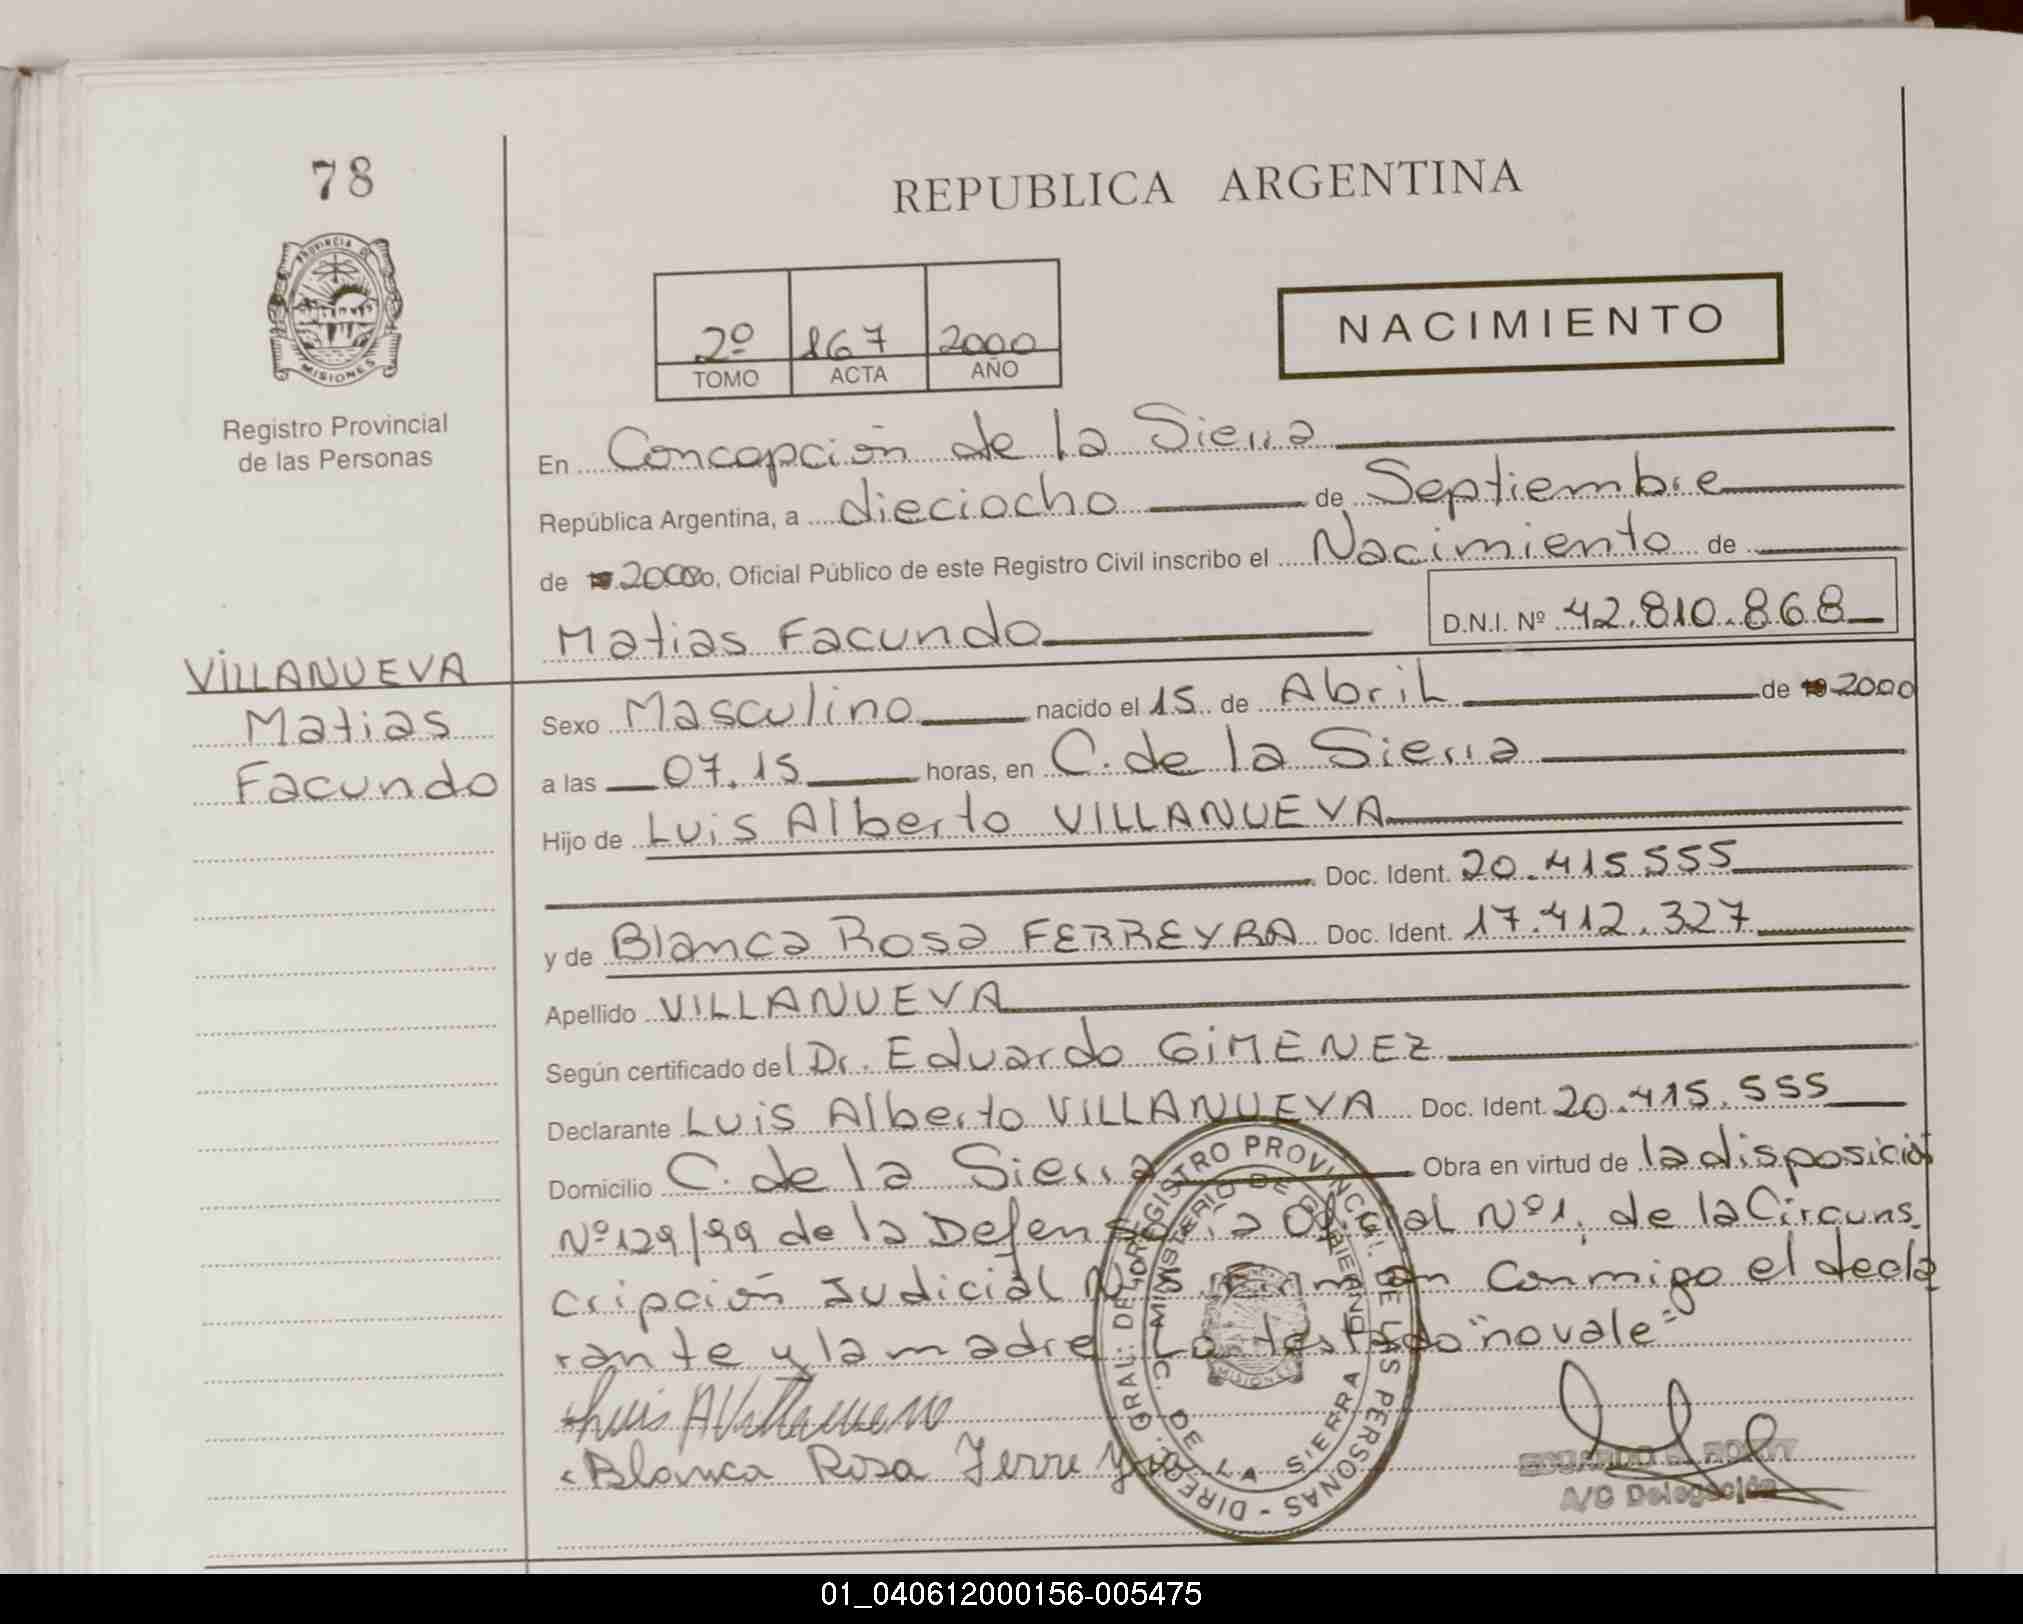 78
REPUBLICA ARGENTINA
PROVINCIA DE
MISIONES
Registro Provincial
de las Personas
2º 167 2000
TOMO ACTA AÑO
NACIMIENTO
En Concepción de la Sierra
República Argentina, a dieciocho de Septiembre
de 2000, Oficial Público de este Registro Civil inscribo el Nacimiento de
Matias Facundo D.N.I. Nº 42.810.868
VILLANUEVA
Matias
Facundo
Sexo Masculino nacido el 15 de Abril de 2000
a las 07.15 horas, en C. de la Sierra
Hijo de Luis Alberto VILLANUEVA
Doc. Ident. 20.415.555
y de Blanca Rosa FERREYRA Doc. Ident. 17.412.327
Apellido VILLANUEVA
Según certificado del Dr. Eduardo GIMENEZ
Declarante Luis Alberto VILLANUEVA Doc. Ident. 20.415.555
Domicilio C. de la Sierra Obra en virtud de la disposición
Nº 129/99 de la Defensoría Oficial Nº 1, de la Circuns
cripción Judicial Firman conmigo el decla
rante y la madre. Lo testado "no vale"
Luis A Villanueva
Blanca Rosa Ferreyra
DIREC. GRAL. DEL REGISTRO PROVINCIAL DE LAS PERSONAS
MINISTERIO DE GOBIERNO
C. DE LA SIERRA
MISIONES
A/C Delegación
01_040612000156-005475